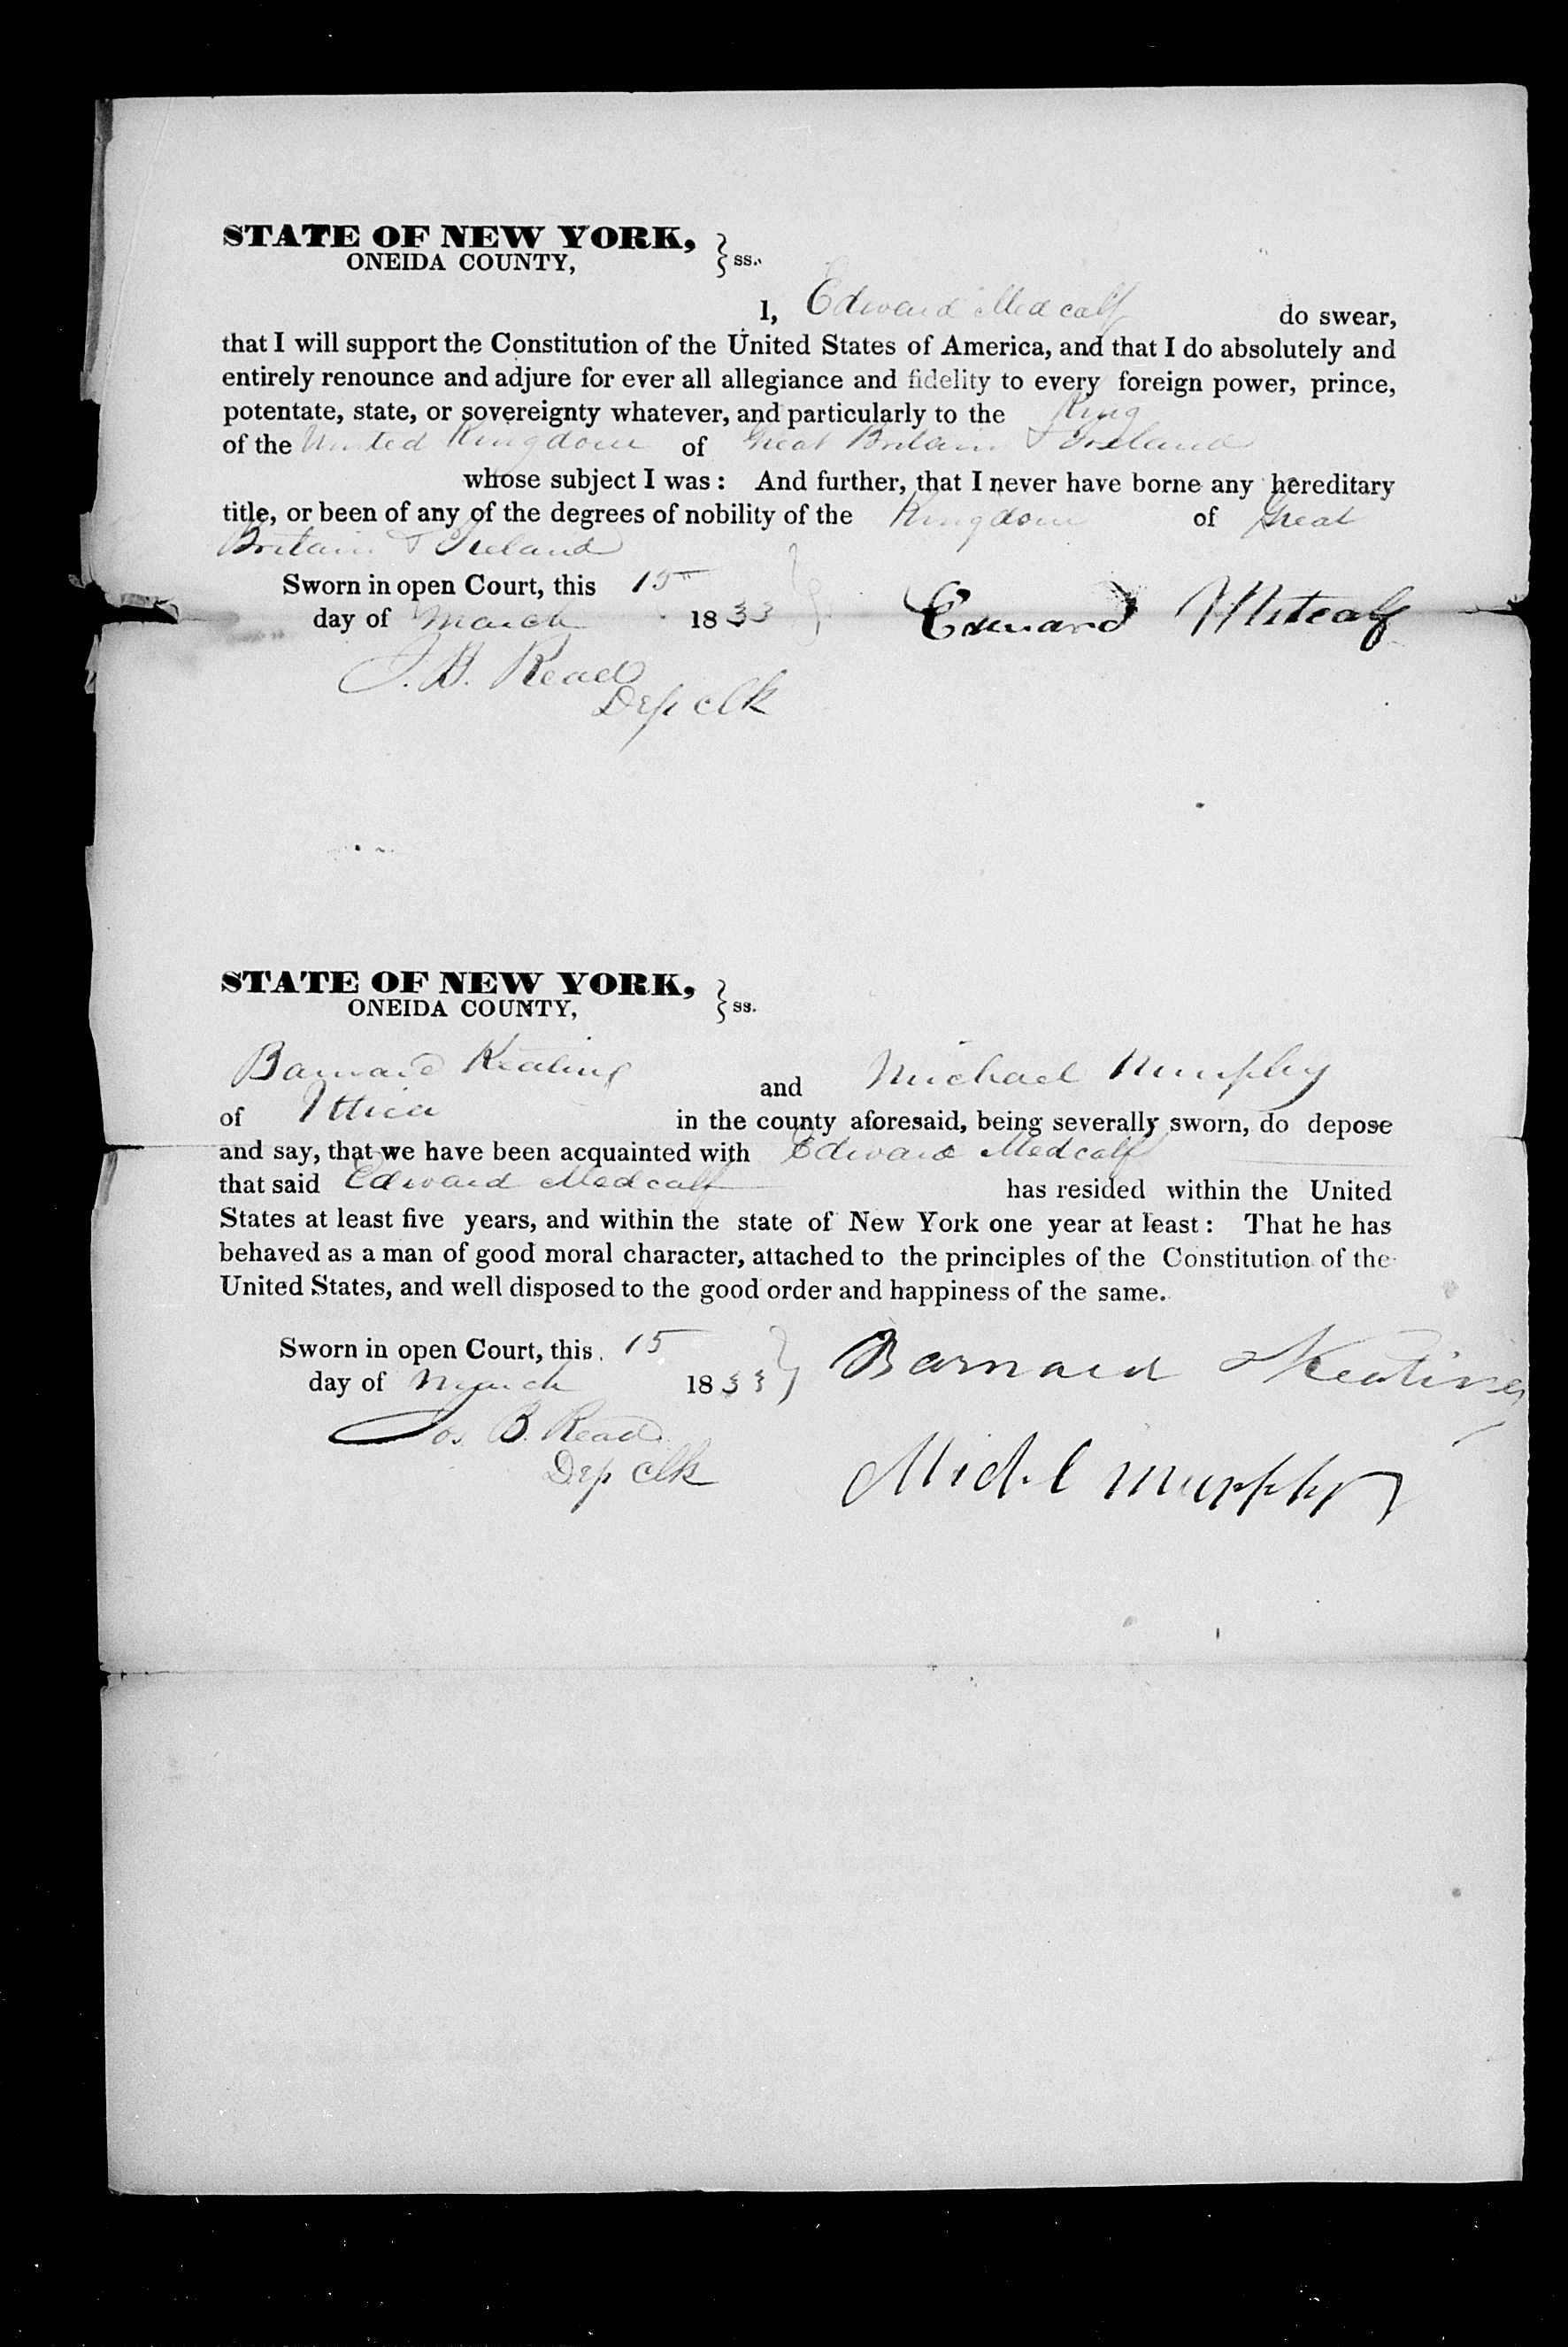 STATE OF NEW YORK,
ONEIDA COUNTY, } ss.
I, Edward Medcalf do swear,
that I will support the Constitution of the United States of America, and that I do absolutely and
entirely renounce and adjure for ever all allegiance and fidelity to every foreign power, prince,
potentate, state, or sovereignty whatever, and particularly to the King
of the United Kingdom of Great Britain & Ireland
whose subject I was: And further, that I never have borne any hereditary
title, or been of any of the degrees of nobility of the Kingdom of Great
Britain & Ireland
Sworn in open Court, this 15th
day of March 1833 } Edward Metcalf
J. B. Read
Dep clk
STATE OF NEW YORK,
ONEIDA COUNTY, } ss.
Barnard Keating and Michael Murphy
of Uttica in the county aforesaid, being severally sworn, do depose
and say, that we have been acquainted with Edward Medcalf
that said Edward Medcalf has resided within the United
States at least five years, and within the state of New York one year at least: That he has
behaved as a man of good moral character, attached to the principles of the Constitution of the
United States, and well disposed to the good order and happiness of the same.
Sworn in open Court, this 15
day of March 1833 } Barnard Keating
Jos. B. Read
Dep clk
Michl Murphy